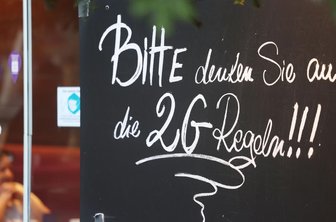 Bitte denken Sie an
die 2G-Regeln!!!